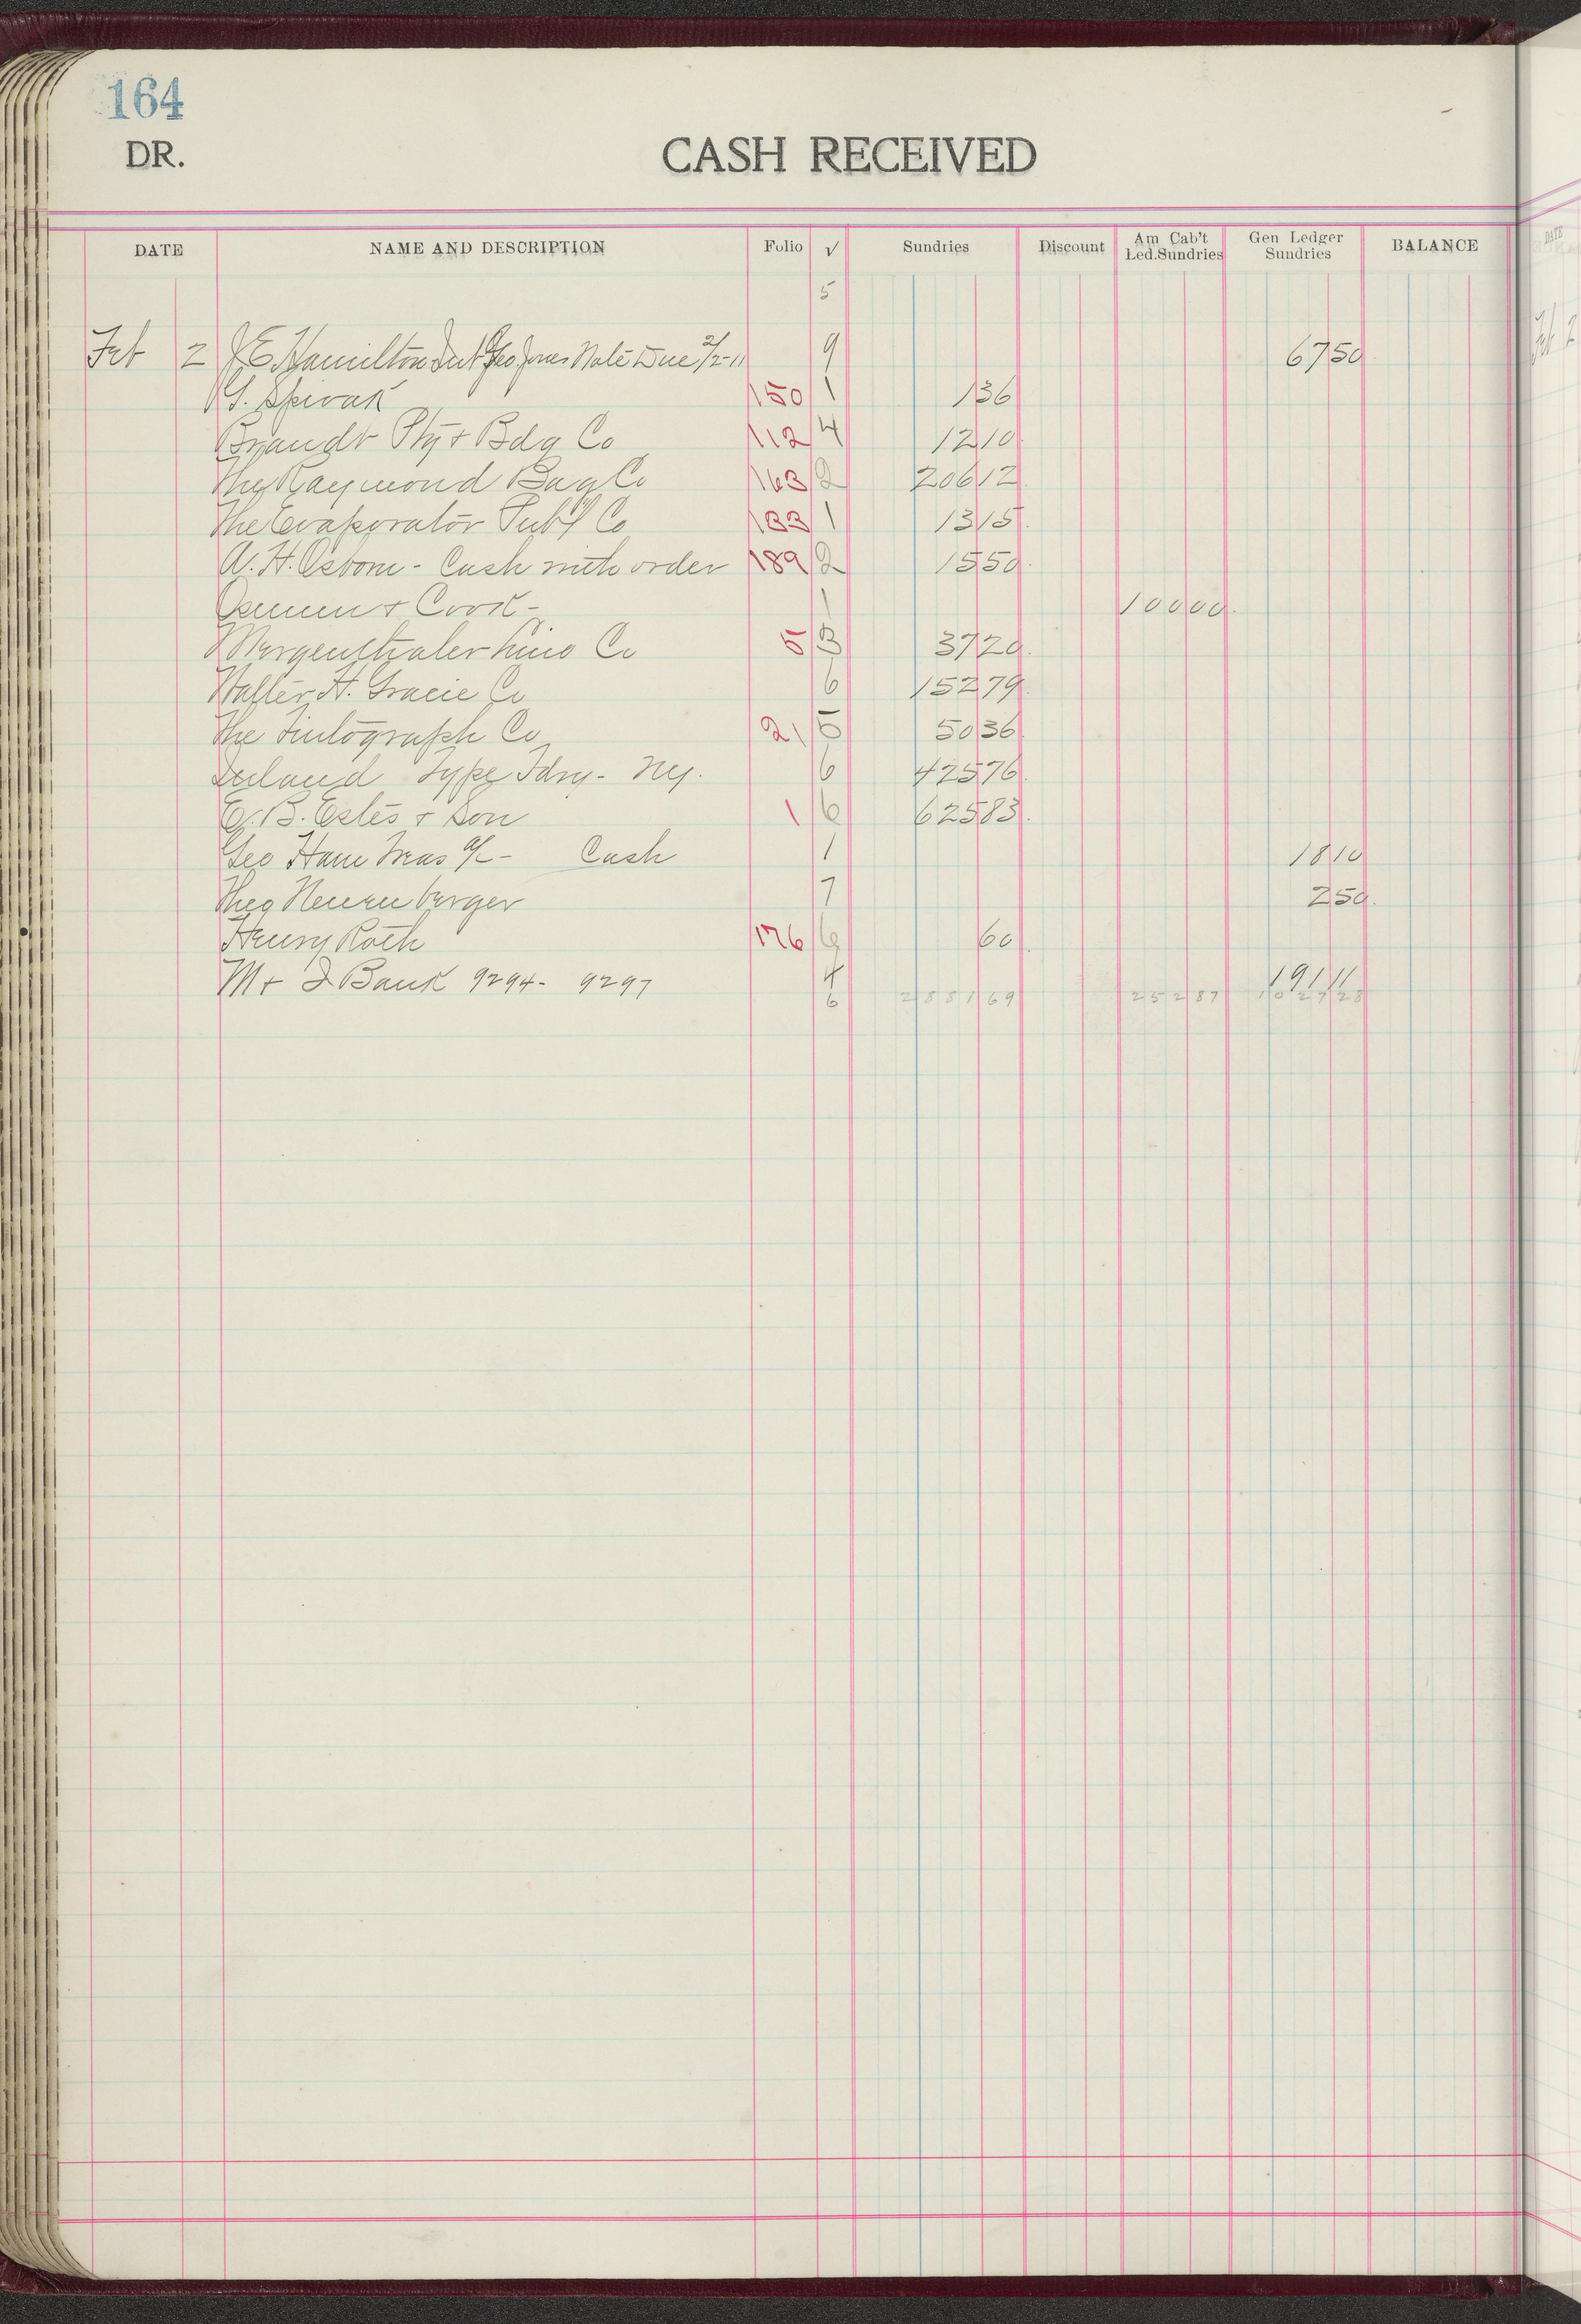 164
DR.
CASH RECEIVED
DATE NAME AND DESCRIPTION Folio √ Sundries Discount Am Cab't Led.Sundries Gen Ledger Sundries BALANCE
5
Feb 2 J E Hamilton Int Geo Jones Note Due 2/2-11 9 67 50
G. Spivak 150 1 1 36
Brandt Ptg + Bdg Co 112 4 12 10
The Raymond Bag Co 163 2 206 12
The Evaporator Pub'l Co 133 1 13 15
A. H. Osborn - Cash with order 189 2 15 50
+ Cook - 1 100 00
Mergenthaler Lino Co 5 3 37 20
Walter H. Gracie Co 6 152 79
The Tintograph Co 21 5 50 36
Inland Type Fdry - NY. 6 425 76
E. B. Estes + Son 1 6 625 83
Geo Ham Treas a/c - Cash 1 18 10
Theo Neuenberger 7 2 50
Henry Roth 176 6 60
M + I Bank 9294 - 9297 4 191 11
6 2881 69 252 87 1027 28